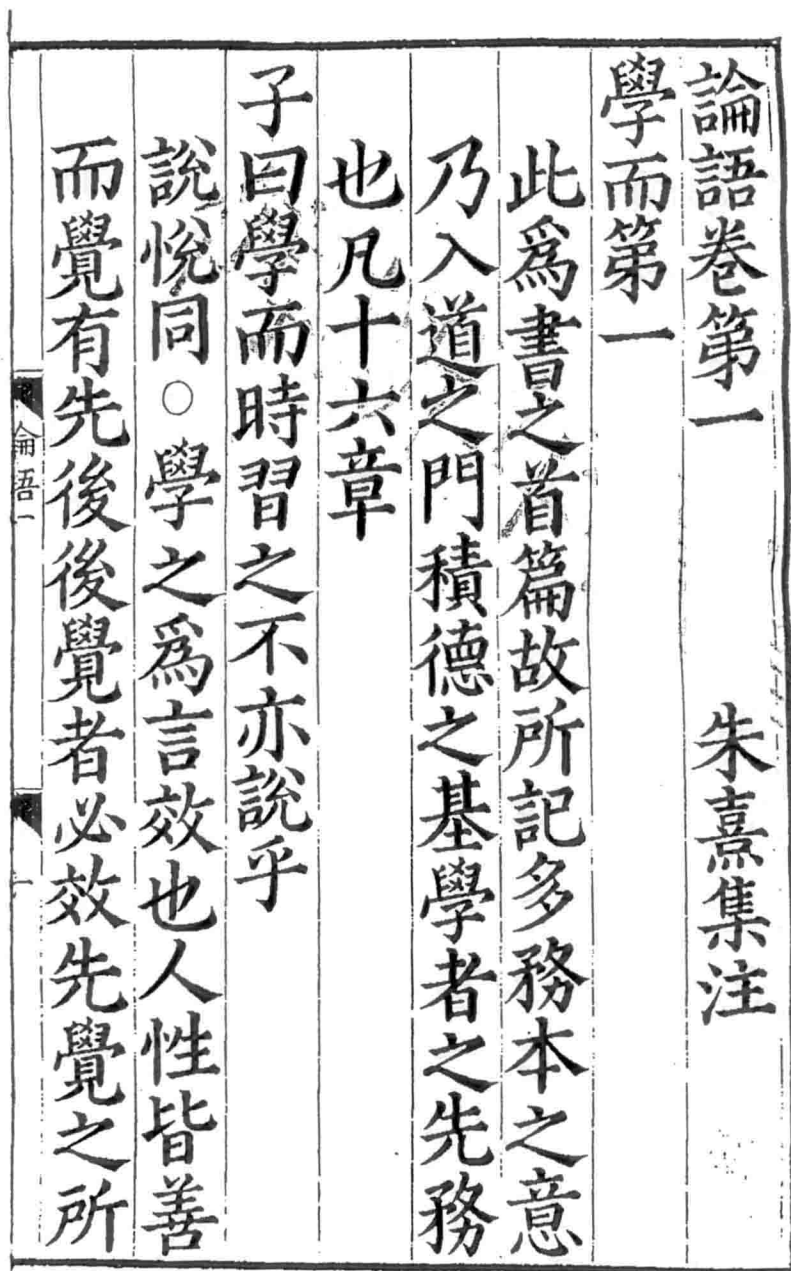 論語卷第一　朱熹集注
學而第一
此爲書之首篇故所記多務本之意
乃入道之門積德之基學者之先務
也凡十六章
子曰學而時習之不亦說乎
說悅同○學之爲言效也人性皆善
而覺有先後後覺者必效先覺之所
論語一
一